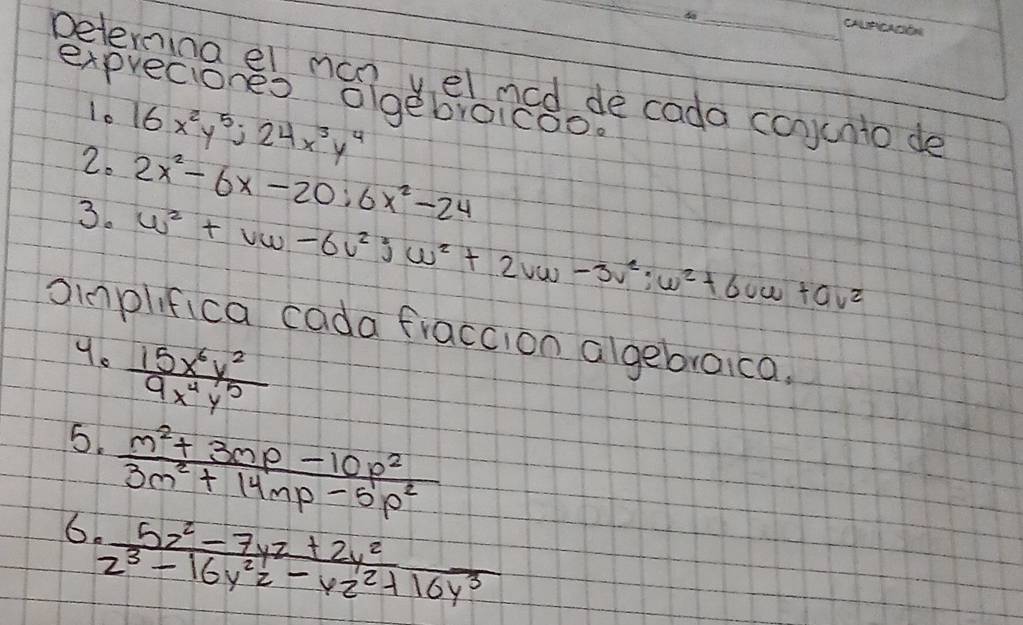 CALIFICACIÓN
Determina el mcm y el mcd de cada conjunto de
expreciones algebraicas.
1. 16x²y⁵; 24x³y⁴
2. 2x² - 6x - 20; 6x² - 24
3. w² + vw - 6v²; w² + 2vw - 3v²; w² + 6vw + 9v²
Simplifica cada fraccion algebraica.
4. 15x⁶y² / 9x⁴y⁵
5. m² + 3mp - 10p² / 3m² + 14mp - 5p²
6. 5z² - 7yz + 2y² / z³ - 16y²z - yz² + 16y³